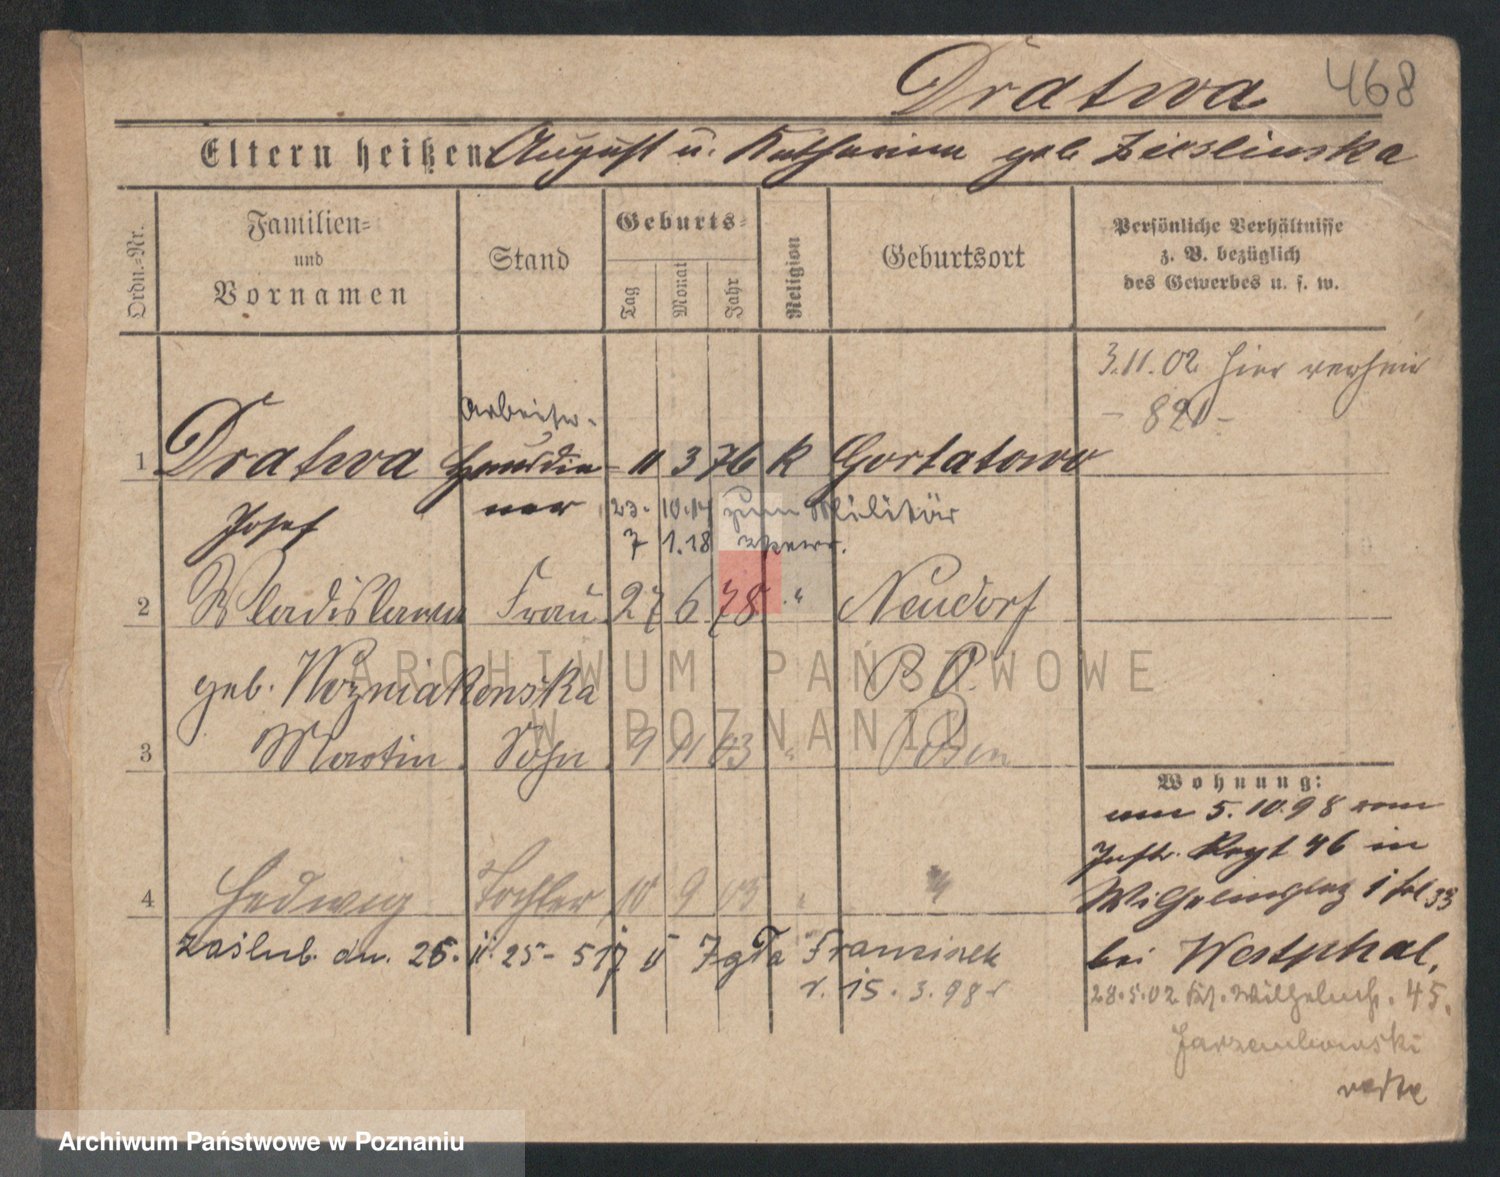 Dratwa 468
Eltern heißen August u. Katharina geb Zieslinska
Ordn.-Nr.
Familien= und Vornamen
Stand
Geburts=
Tag Monat Jahr
Religion
Geburtsort
Persönliche Verhältnisse
z. B. bezüglich
des Gewerbes u. s. w.
3.11.02 hier verheir
- 821 -
Arbeitr.
1 Dratwa Hausdie- 11 3 76 k Gortatowo
Josef ner 23. 10.14 zum Militär
7 1.18
2 Wladislawa Frau 27 6 78 " Neudorf
geb. Wozniakowska
3 Martin Sohn 9 11 03 " Posen
Wohnung:
am 5.10.98 vom
Inftr. Regt 46 in
4 Hedwig Tochter 10 9 03 " "
Wilhelmsplatz 1 bei Westphal,
zaślub. dn. 26. 11. 25 - 517 Franciszek
r. 15. 3. 98
28.5.02 45.
Jarzembowski
ARCHIWUM PAŃSTWOWE
W POZNANIU
Archiwum Państwowe w Poznaniu